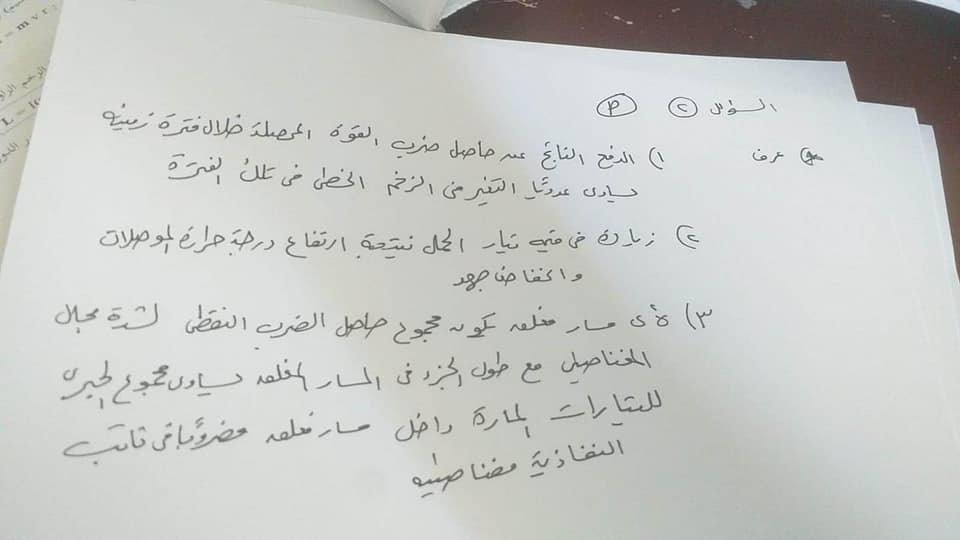 السؤال ② Ⓟ
عرف ١) الدفع الناتج عن حاصل ضرب القوة المحصلة خلال فترة زمنيه
يساوي عدديًا التغير في الزخم الخطي في تلك الفترة
٢) زيادة في قيمة تيار الحمل نتيجة ارتفاع درجة حرارة الموصلات
وانخفاض جهد
٣) لأي مسار مغلق يكون مجموع حاصل الضرب النقطي لشدة مجال
المغناطيسي مع طول الجزء في المسار المغلق يساوي مجموع الجبري
للتيارات المارة داخل مسار مغلق مضروبًا في ثابت
النفاذية مغناطيسيه
m v r
الزخم الزاو
L = I